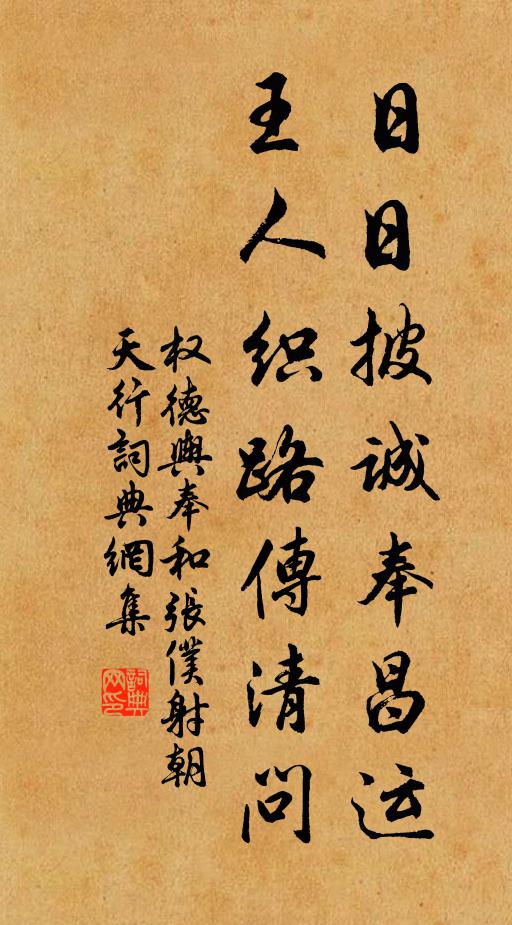 日日披诚奉昌运
王人织路傳清问
权德輿奉和張僕射朝
天行詞典網集
詞典網印